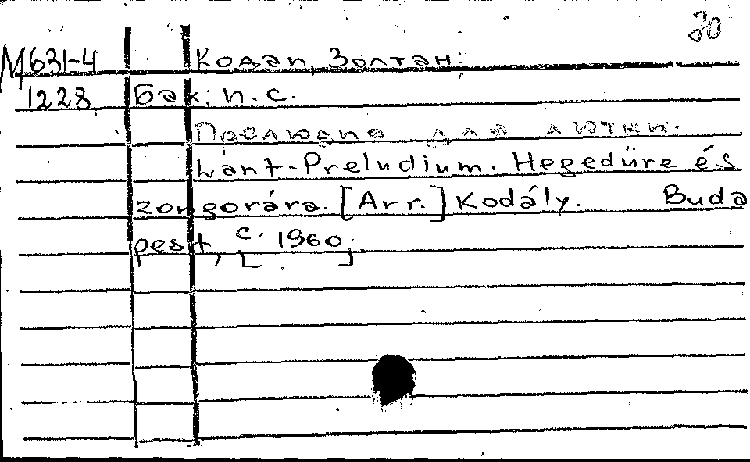 30
М631-4 Кодаи, Золтан.
1228 Бах. И.С.
Прелюдио для лютни.
Lant-Preludium. Hegedüre és
zongorára. [Arr.] Kodály. Buda
pest, [c. 1960].